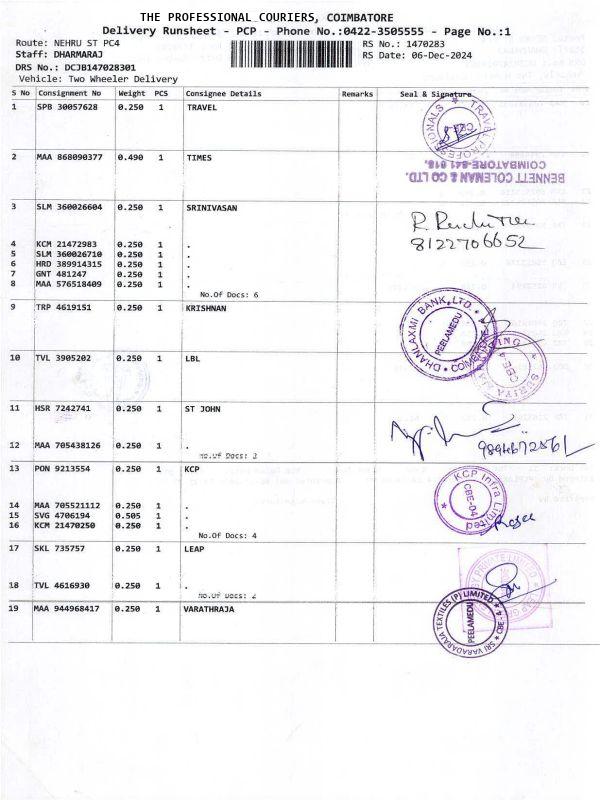 THE PROFESSIONAL COURIERS, COIMBATORE
Delivery Runsheet - PCP - Phone No.:0422-3505555 - Page No.:1
Route: NEHRU ST PC4
Staff: DHARMARAJ
DRS No.: DCJB147028301
Vehicle: Two Wheeler Delivery
RS No.: 1470283
RS Date: 06-Dec-2024
S No Consignment No Weight PCS Consignee Details Remarks Seal & Signature
1 SPB 30057628 0.250 1 TRAVEL
TRAVEL PROFESSIONALS
2 MAA 868090377 0.490 1 TIMES
BENNETT COLEMAN & CO LTD.
COIMBATORE-641 018.
3 SLM 360026604 0.250 1 SRINIVASAN
8122706652
4 KCM 21472983 0.250 1 .
5 SLM 360026710 0.250 1 .
6 HRD 389914315 0.250 1 .
7 GNT 481247 0.250 1 .
8 MAA 576518409 0.250 1 .
No.Of Docs: 6
9 TRP 4619151 0.250 1 KRISHNAN
DHANLAXMI BANK LTD.
PEELAMEDU
COIMBATORE
10 TVL 3905202 0.250 1 LBL
CBE-4
11 HSR 7242741 0.250 1 ST JOHN
12 MAA 705438126 0.250 1 .
No.Of Docs: 2
13 PON 9213554 0.250 1 KCP
KCP Infra Limited
CBE-04
14 MAA 705521112 0.250 1 .
15 SVG 4706194 0.505 1 .
16 KCM 21470250 0.250 1 .
No.Of Docs: 4
17 SKL 735757 0.250 1 LEAP
18 TVL 4616930 0.250 1 .
No.Of Docs: 2
19 MAA 944968417 0.250 1 VARATHRAJA
SRI VARADARAJA TEXTILES (P) LIMITED
PEELAMEDU
CBE-4